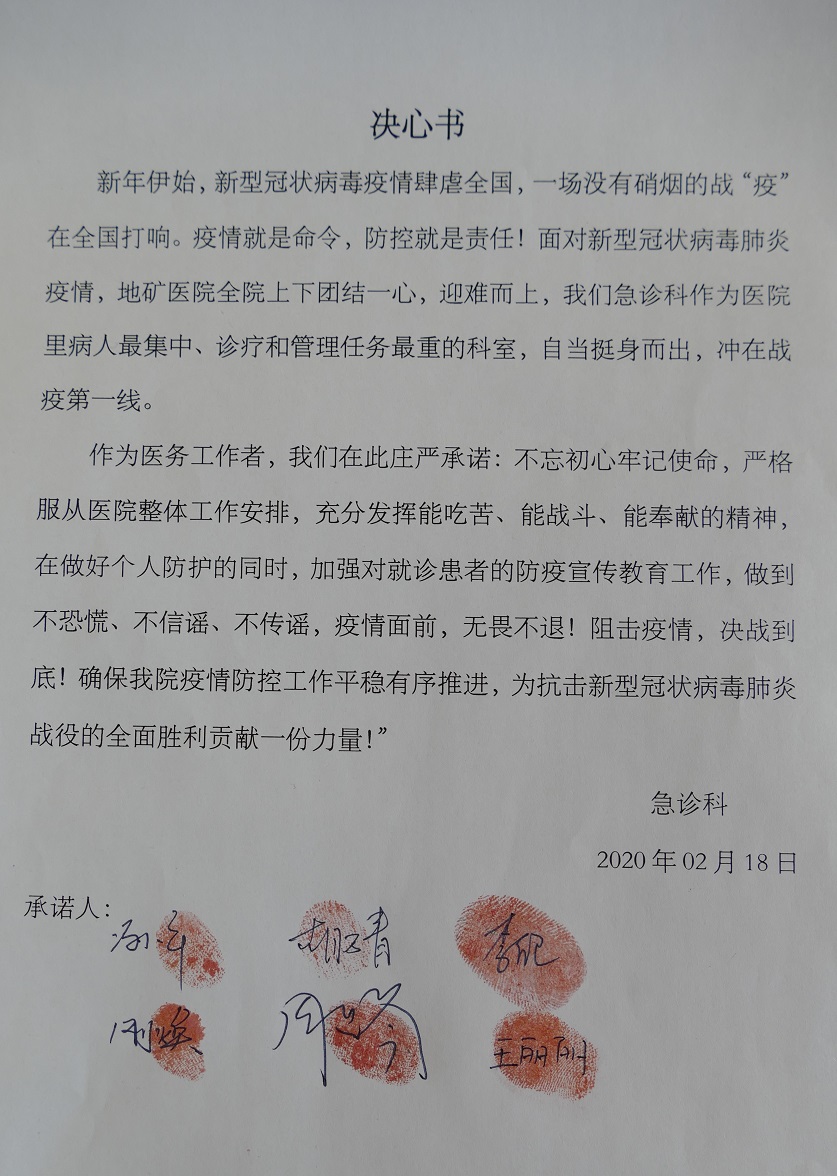 决心书
新年伊始，新型冠状病毒疫情肆虐全国，一场没有硝烟的战“疫”
在全国打响。疫情就是命令，防控就是责任！面对新型冠状病毒肺炎
疫情，地矿医院全院上下团结一心，迎难而上，我们急诊科作为医院
里病人最集中、诊疗和管理任务最重的科室，自当挺身而出，冲在战
疫第一线。
作为医务工作者，我们在此庄严承诺：不忘初心牢记使命，严格
服从医院整体工作安排，充分发挥能吃苦、能战斗、能奉献的精神，
在做好个人防护的同时，加强对就诊患者的防疫宣传教育工作，做到
不恐慌、不信谣、不传谣，疫情面前，无畏不退！阻击疫情，决战到
底！确保我院疫情防控工作平稳有序推进，为抗击新型冠状病毒肺炎
战役的全面胜利贡献一份力量！”
急诊科
2020 年 02 月 18 日
承诺人：
王丽刚